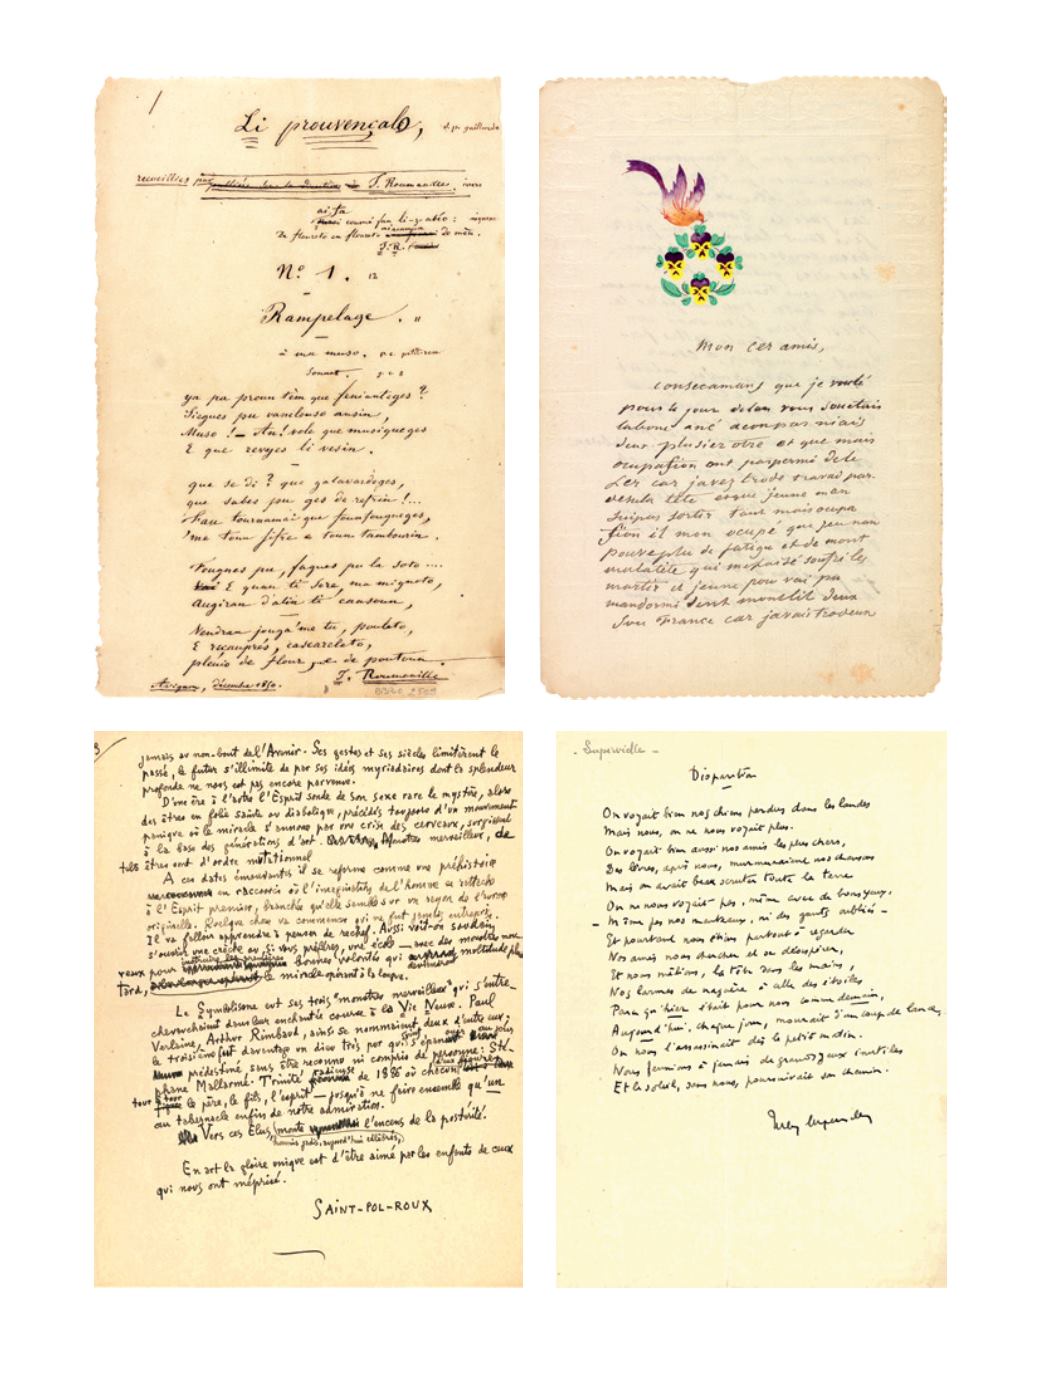 Li prouvençalo,
recueillies par J. Roumanille.
aifa
coumé fan li-z-abéo :
De floureto en floureto de mèu.
J. R.
N° 1. 12
Rampelage. "
à ma muso.
Sonnet.
ya pa proun tèm que fenianteges ?
Siegues pu vanelouso ansin,
Muso ! — An ! vole que musiqueges
E que reveyes li vesin.
que se di ? que galavardeges,
que sabes pu ges de refrin !...
Fau tournamai que founfougneges,
'me toun fifre e toun tambourin.
Fougnes pu, fagues pu la soto ....
E quan ti sore, ma mignoto,
Augiran d'alin ti cansoun,
Vendran jouga 'me tu, pouleto,
E reçauprés, cascareleto,
plen de flour, e de poutoun.
J. Roumanille
Avignon, décembre 1850.
Mon cer amis,
consecamans que je voulé
pour le jour delan vous souetais
labone ané acompas niais
deux plusier otre et que mais
ocupasion ont paspermi dele
fer car javez trode travai par-
desula tête esque jeune men
suipas sortir tant mais ocupa
sion il mon ocupé que jeu nan
pouveplu de fatigue et de mont
malatête qui mefaisé soufri les
martir et jeune pouvai pa
mandormi dent monélit deux
Sou France car javais trodeux
3/
jamais au non-bout de l'Avenir. Ses gestes et ses siècles limitèrent le
passé, le futur s'illimite de par ses idées myriadaires dont la splendeur
profonde ne nous est pas encore parvenue.
D'une ère à l'autre l'Esprit sonde de son sexe rare le mystère, alors
des êtres en folie sainte ou diabolique, précédés toujours d'un mouvement
panique où le miracle s'annonce par une crise des cerveaux, surgissent
à la base des générations d'art. Monstres merveilleux, de
tels êtres sont d'ordre mutationnel
A ces dates émouvantes il se reforme comme une préhistoire
en raccourci où l'imaginatif de l'homme se rattache
à l'Esprit premier, branchée qu'elle semble sur un rayon de l'aurore
originelle. Quelque chose va commencer qui ne fut jamais entrepris.
Il va falloir apprendre à penser de rechef. Aussi voit-on soudain
s'ouvrir une crèche ou, si vous préférez, une école — avec des monstres mer-
veilleux pour instruire les premières bonnes volontés qui deviendront multitude plus
tard, le miracle opérant à la longue.
Le Symbolisme eut ses trois "monstres merveilleux" qui s'entre-
cherchaient dans leur enchantée course à la Vie Neuve. Paul
Verlaine, Arthur Rimbaud, ainsi se nommaient deux d'entre eux ;
le troisième fut davantage un dieu très pur qui s'épanouit
prédestiné sans être reconnu ni compris de personne : Sté-
phane Mallarmé. Trinité radieuse de 1886 où chacun
tour à tour le père, le fils, l'esprit — jusqu'à ne faire ensemble qu'un
au tabernacle enfin de notre admiration.
Vers ces Élus, honnis jadis, aujourd'hui célébrés, monte l'encens de la postérité.
En art la gloire unique est d'être aimé par les enfants de ceux
qui nous ont méprisé.
SAINT-POL-ROUX
. Supervielle -
Disparition
On voyait bien nos chiens perdus dans les landes
Mais nous, on ne nous voyait plus.
On voyait bien aussi nos amis les plus chers,
Des lèvres, après nous, murmuraient nos chansons
Mais on avait beau scruter toute la terre
On ne nous voyait pas, même avec de bons yeux.
- Même pas nos manteaux, ni des gants oubliés -
Et pourtant nous étions partout à regarder
Nos amis nous chercher et se désespérer,
Et nous mêlions, la tête dans les mains,
Nos larmes de naguère à celle des étoiles
Parce qu'hier était pour nous comme demain,
Aujourd'hui, chaque jour, mourait d'un coup de lance.
On nous l'assassinait dès le petit matin.
Nous fermions à jamais de grands yeux inutiles
Et le soleil, sans nous, poursuivait son chemin.
Jules Supervielle